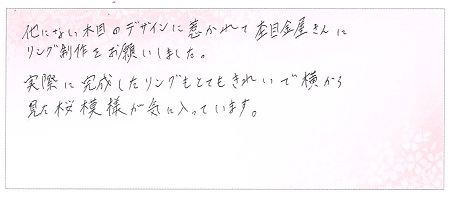 他にない木目のデザインに惹かれて杢目金屋さんに
リング制作をお願いしました。
実際に完成したリングもとてもきれいで横から
見た桜模様が気に入っています。